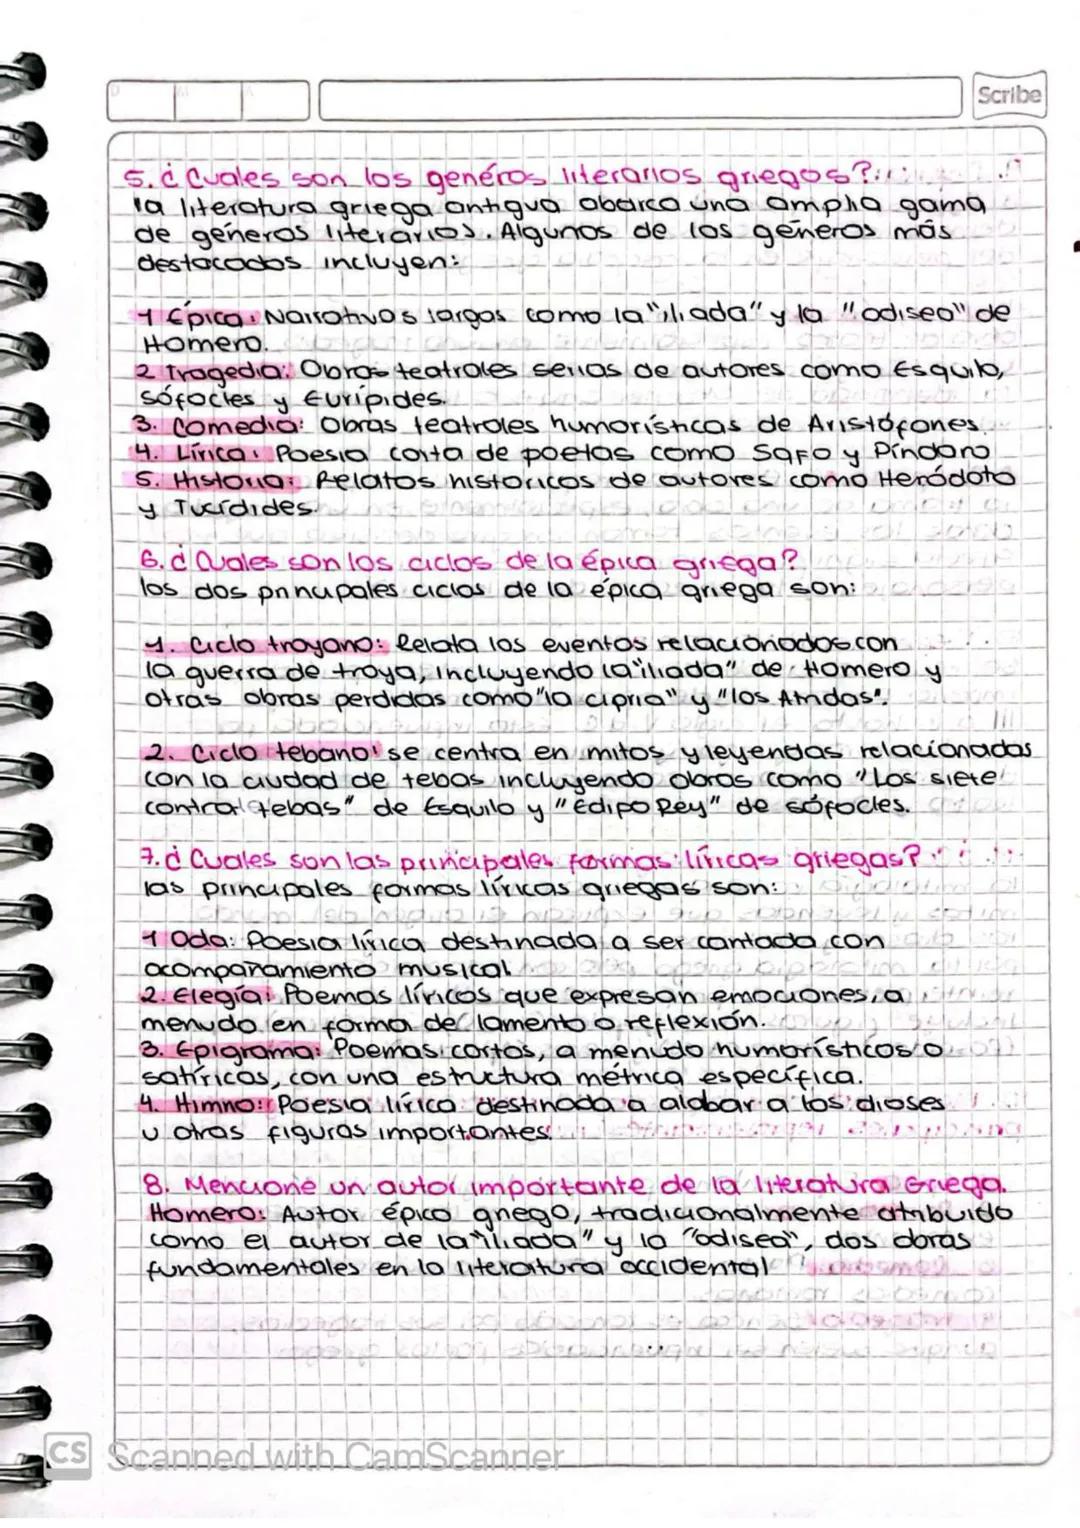 Scribe
5. ¿Cuales son los genéros literarios griegos?
la literatura griega antigua abarca una amplia gama
de géneros literarios. Algunos de los géneros más
destacados incluyen:
1 Épica: Narrativas largas como la "iliada" y la "odisea" de
Homero.
2 Tragedia: Obras teatrales serias de autores como Esquilo,
Sófocles y Eurípides.
3. Comedia: Obras teatrales humorísticas de Aristófanes.
4. Lírica: Poesia corta de poetas como Safo y Píndaro
5. Historia: Relatos historicos de autores como Heródoto
y Tucídides.
6. ¿Cuales son los ciclos de la épica griega?
los dos principales ciclos de la épica griega son:
1. Ciclo troyano: Relata los eventos relacionados con
la guerra de troya, incluyendo la "iliada" de Homero y
otras obras perdidas como "la cipria" y "los Atridas".
2. Ciclo tebano: se centra en mitos y leyendas relacionadas
con la ciudad de tebas incluyendo obras como "Los siete
contra tebas" de Esquilo y "Edipo Rey" de sófocles.
7. ¿Cuales son las principales formas líricas griegas?
las principales formas líricas griegas son:
1 Oda: Poesia lírica destinada a ser cantada con
acompañamiento musical
2. Elegía: Poemas líricos que expresan emociones, a
menudo en forma de lamento o reflexión.
3. Epigrama: Poemas cortos, a menudo humorísticos o
satíricos, con una estructura métrica específica.
4. Himno: Poesia lírica destinada a alabar a los dioses
u otras figuras importantes.
8. Mencione un autor importante de la literatura Griega.
Homero: Autor épico griego, tradicionalmente atribuido
como el autor de la "iliada" y la "odisea", dos obras
fundamentales en la literatura occidental
CS Scanned with CamScanner